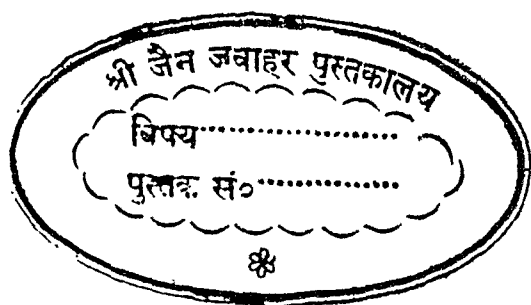 श्री जैन जवाहर पुस्तकालय
विषय....................
पुस्तक सं०...............